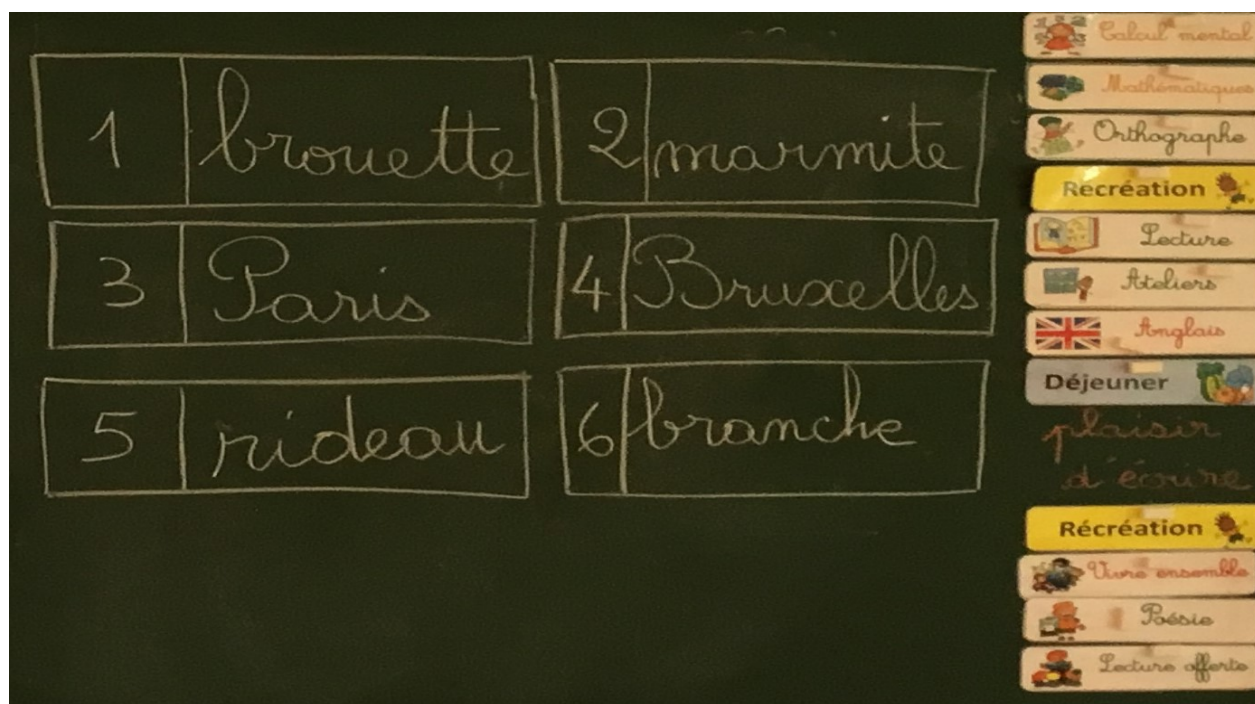 1 brouette 2 marmite
3 Paris 4 Bruxelles
5 rideau 6 branche
Calcul mental
Mathématiques
Orthographe
Recréation
Lecture
Ateliers
Anglais
Déjeuner
plaisir
d'écrire
Récréation
Vivre ensemble
Poésie
Lecture offerte